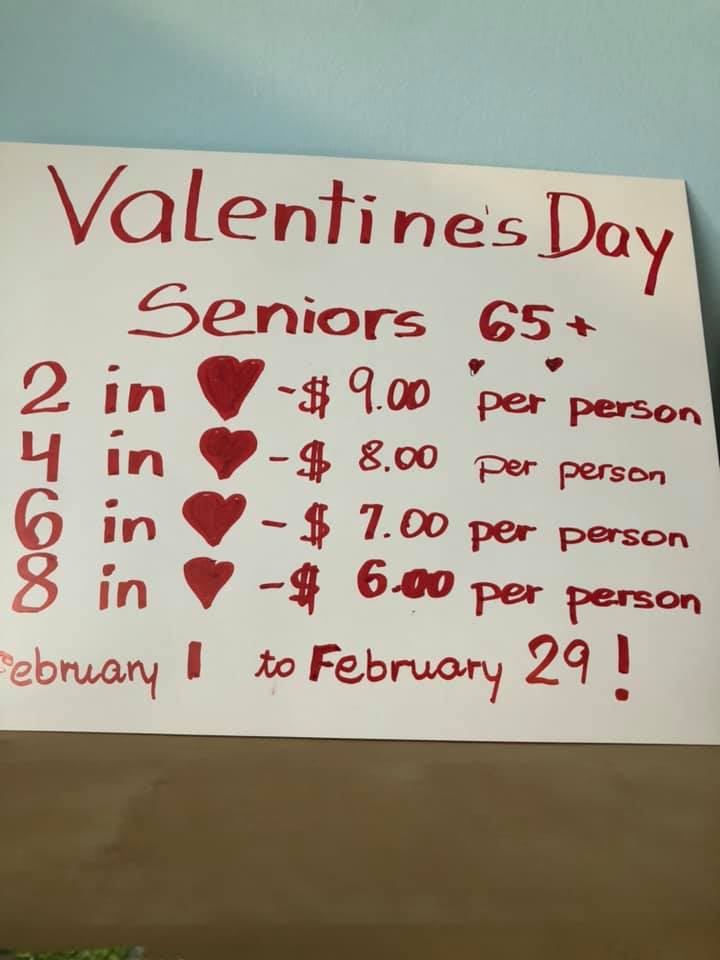 Valentine's Day
Seniors 65+
2 in ♥ - $ 9.00 per person
4 in ♥ - $ 8.00 per person
6 in ♥ - $ 7.00 per person
8 in ♥ - $ 6.00 per person
February 1 to February 29!